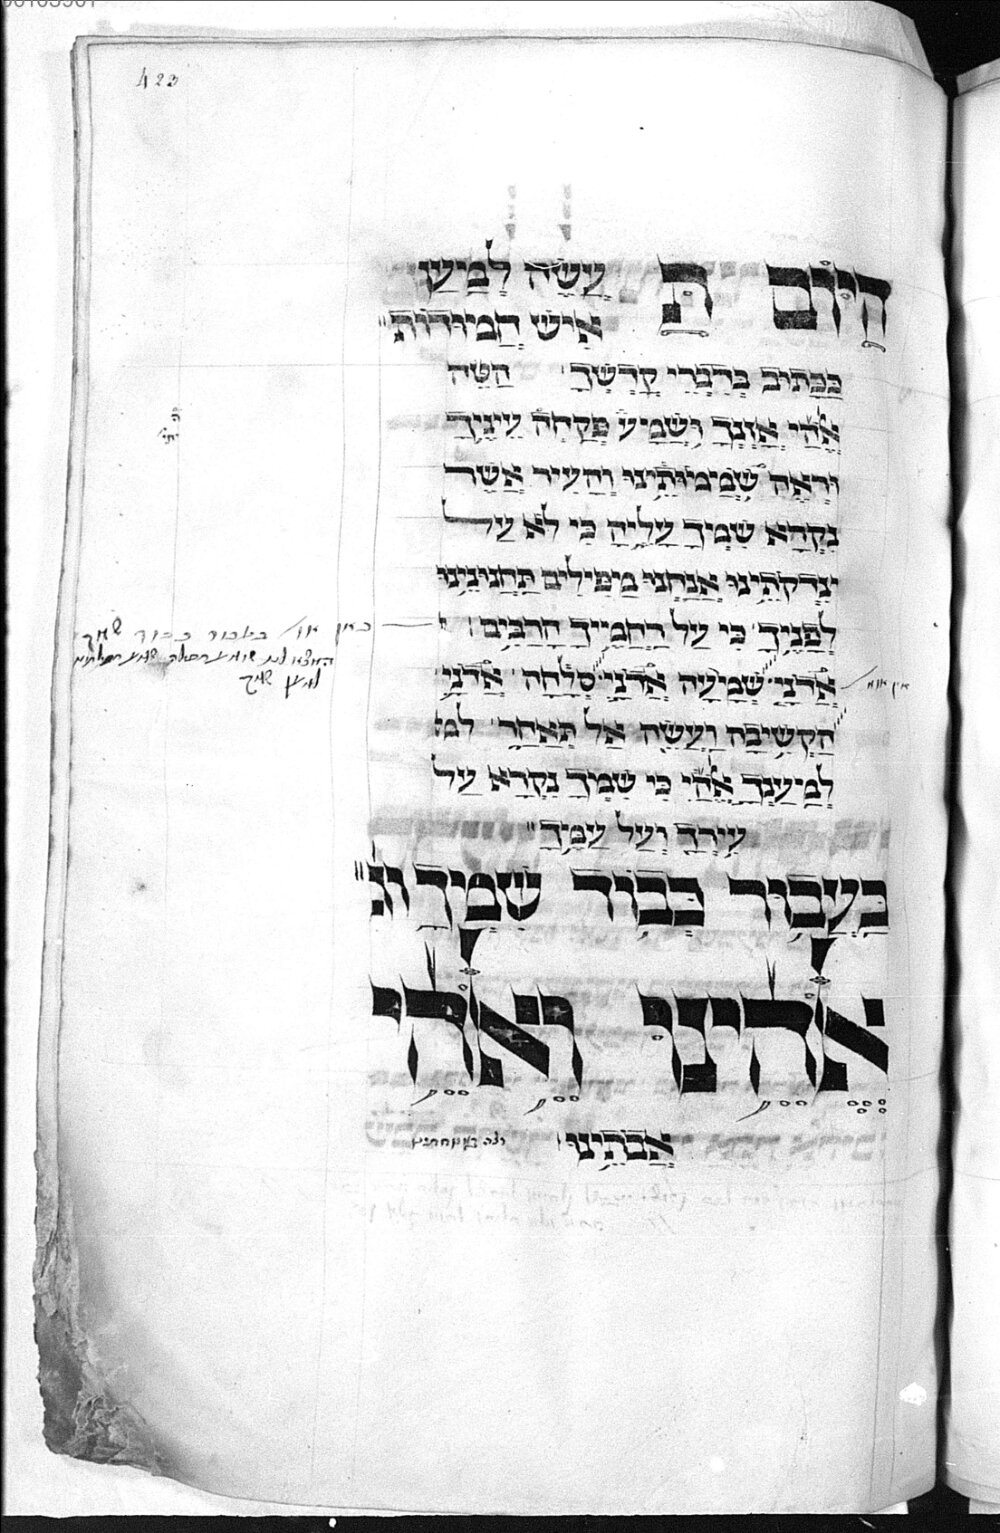 423
היום ת עֲשֵׂה לְמַיעַן
אִישׁ חֲמוּדוֹת׃
כַּכָּתוּב בְּדִבְרֵי קָדְשָׁךְ הַטֵּה
אֱלֹהַי אָזְנְךָ וּשְׁמָע פְּקַחָה עֵינֶיךָ
וּרְאֵה שׁוֹמְמוֹתֵינוּ וְהָעִיר אֲשֶׁר
נִקְרָא שִׁמְךָ עָלֶיהָ כִּי לֹא עַל
צִדְקֹתֵינוּ אֲנַחְנוּ מַפִּילִים תַּחֲנוּנֵינוּ
לְפָנֶיךָ כִּי עַל רַחֲמֶיךָ הָרַבִּים׃
אֲדֹנָי שְׁמָעָה אֲדֹנָי סְלָחָה אֲדֹנָי
הַקְשִׁיבָה וַעֲשֵׂה אַל תְּאַחַר למ
לְמַעַנְךָ אֱלֹהַי כִּי שִׁמְךָ נִקְרָא עַל
עִירְךָ וְעַל עַמֶּךָ׃
בַּעֲבוּר כְּבוֹד שִׁמְךָ וכ׳
אֱלֹהֵינוּ וֵאלֹהֵי
אֲבֹתֵינוּ
כאן או׳ בעבור כבוד שמך
אין אומ׳